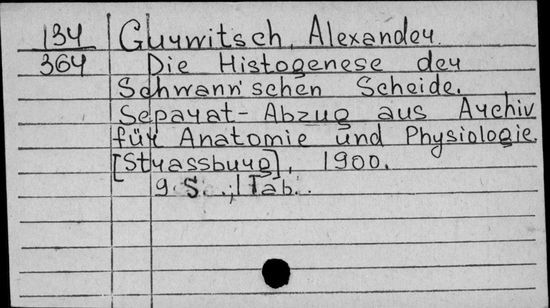 134 Gurwitsch, Alexander.
364 Die Histogenese der
Schwann'schen Scheide.
Separat-Abzug aus Archiv
für Anatomie und Physiologie
[Strassburg], 1900.
9 S., 1 Tab.